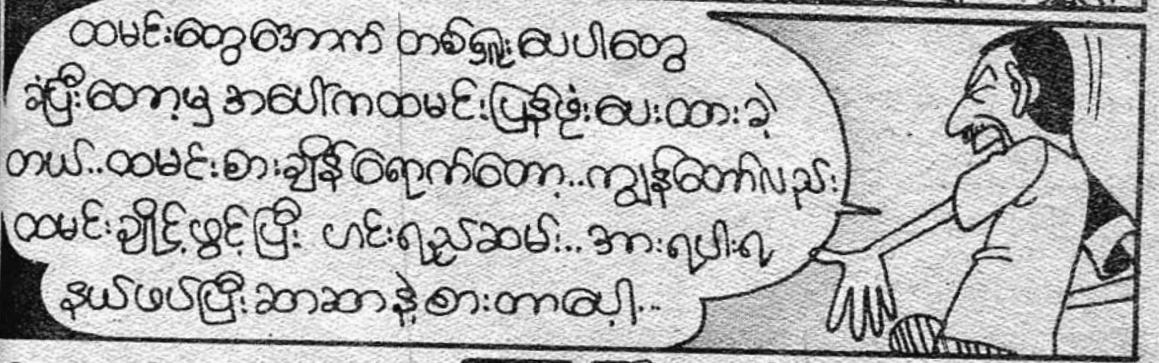 ထမင်းတွေအောက် တစ်ရှူးပေပါတွေ
ခံပြီးတော့မှ အပေါ်ကထမင်းပြန်ဖုံးပေးထားခဲ့
တယ်..ထမင်းစားချိန်ရောက်တော့..ကျွန်တော်လည်း
ထမင်းချိုင့်ဖွင့်ပြီး ဟင်းရည်ဆမ်း..အားရပါးရ
နယ်ဖပ်ပြီးဆာဆာနဲ့စားတာပေါ့...